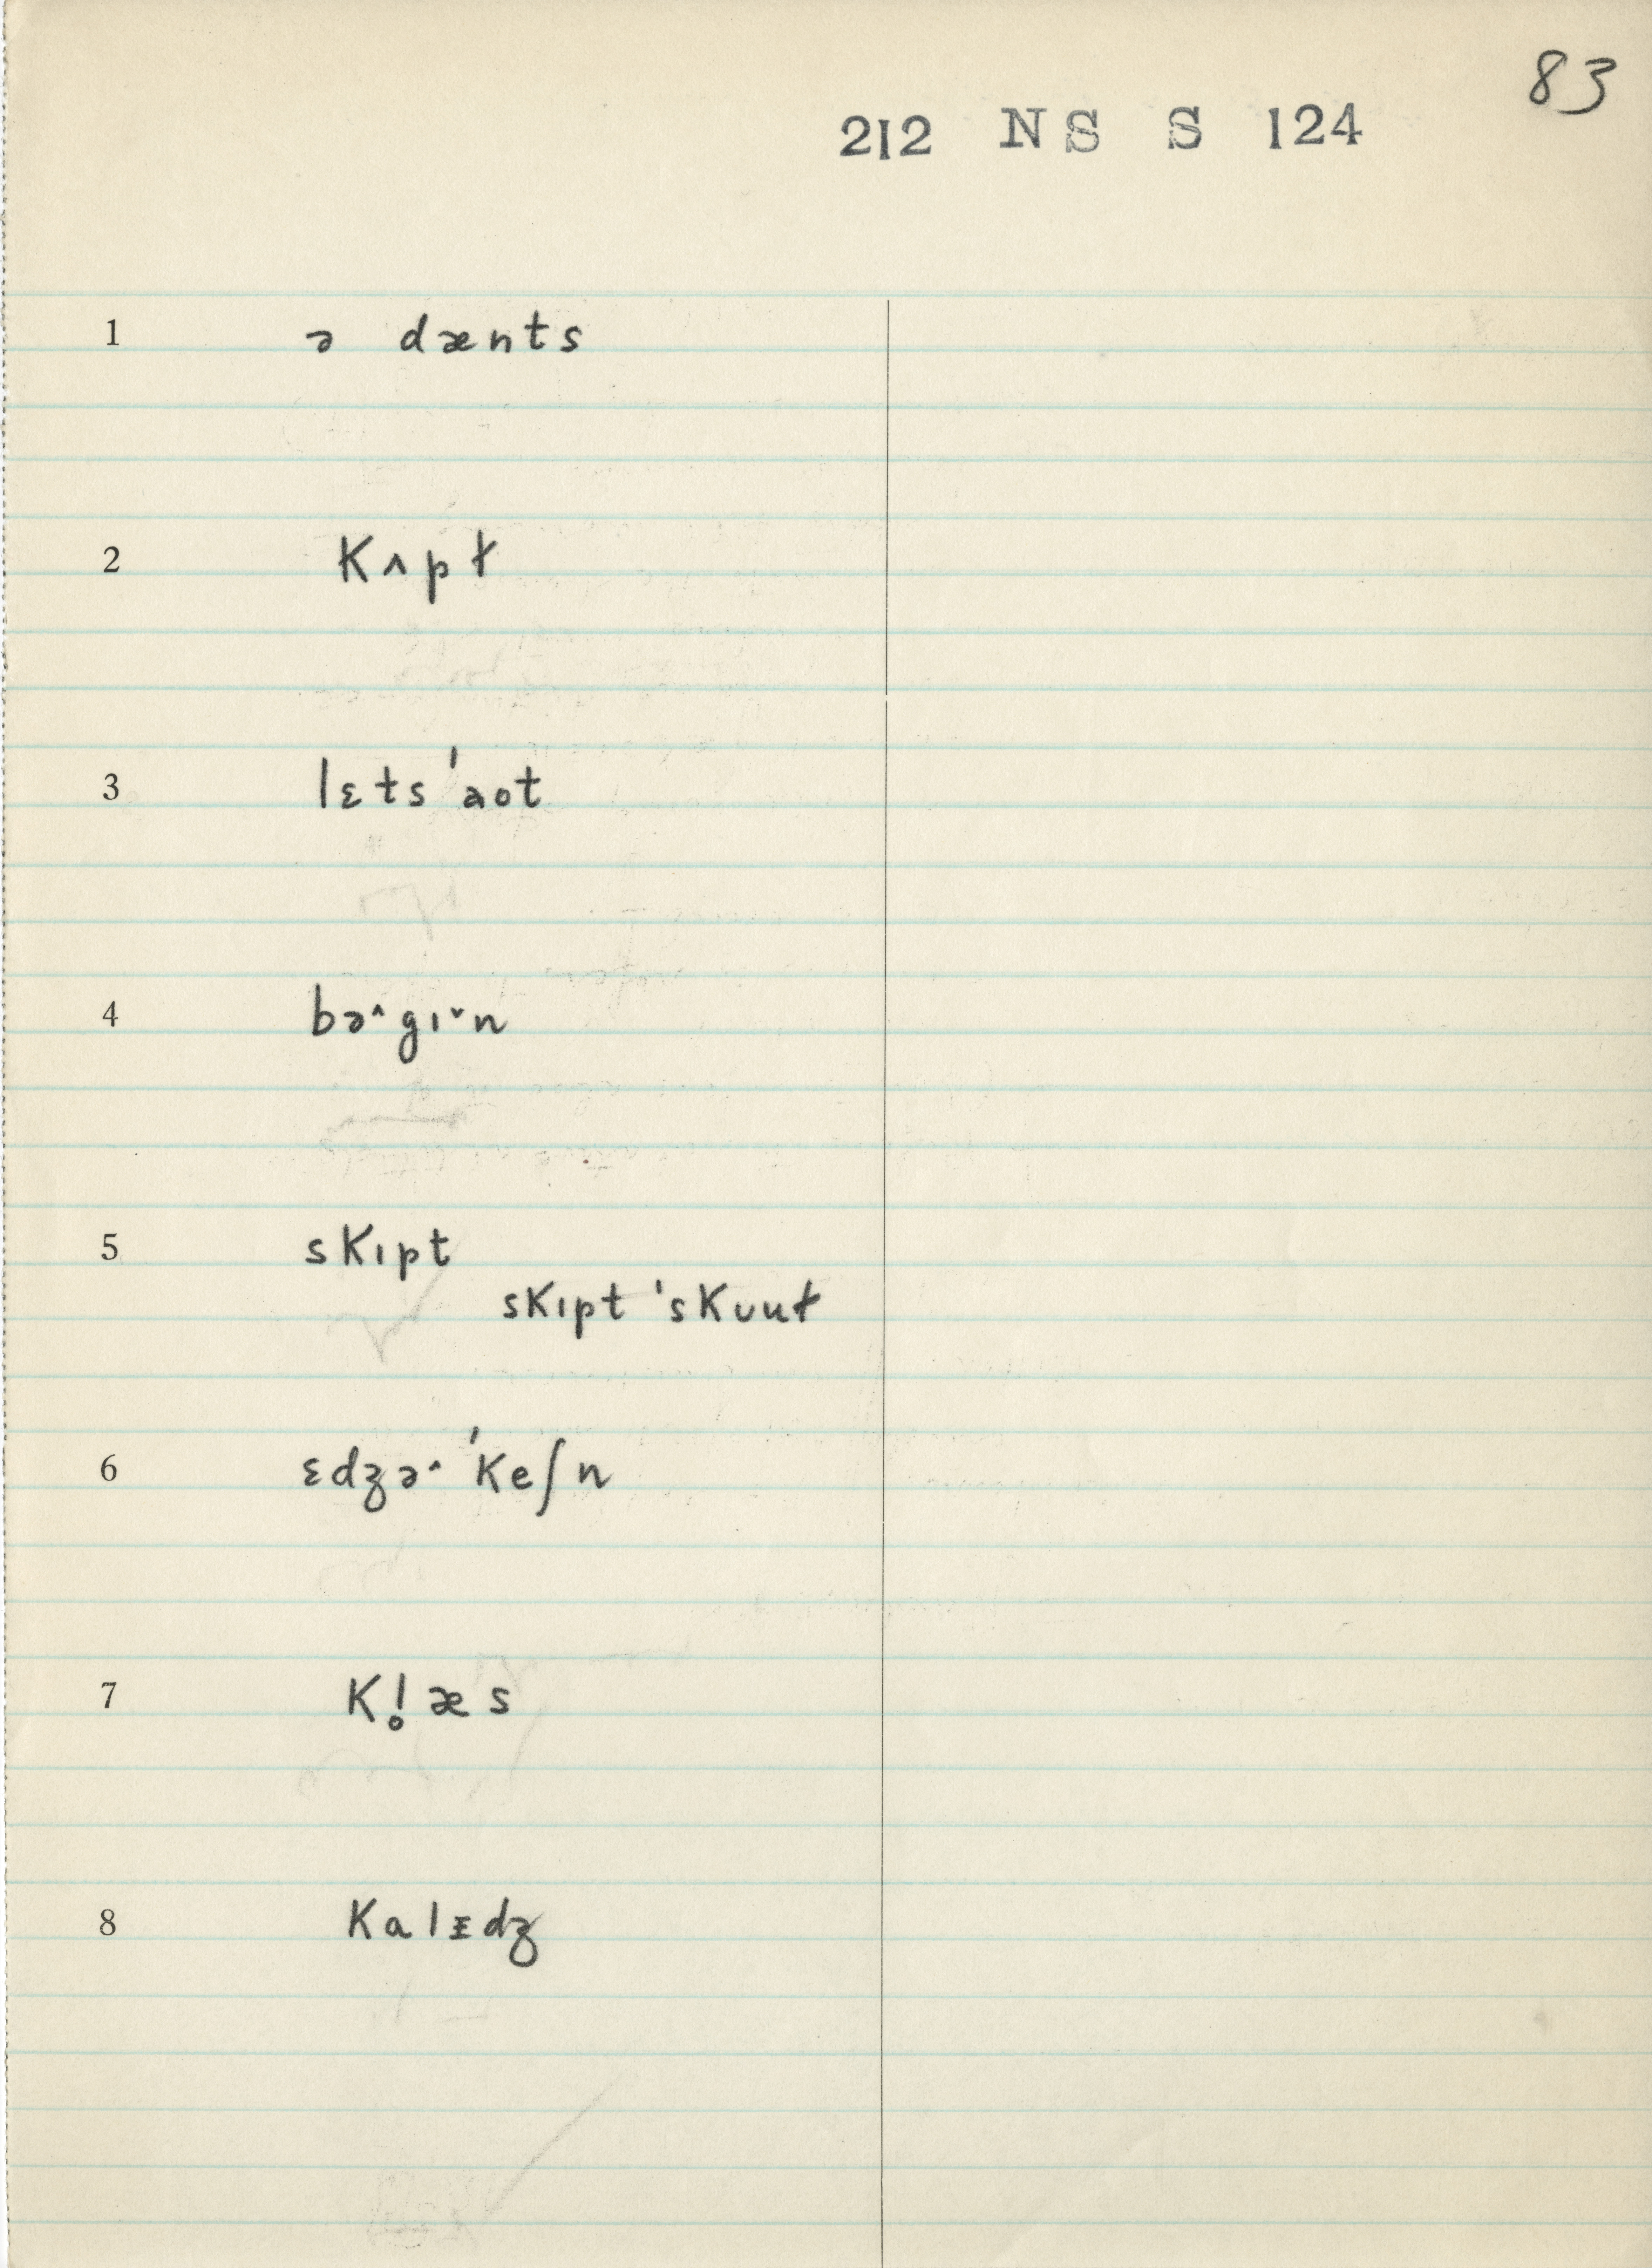 83
212 NS S 124
1 ə dænts
2 kʌpɫ
3 lɛts ˈaot
4 bə˄gɪ˅n
5 skɪpt
skɪpt ˈskuuɫ
6 ɛdʒə˄ˈkeʃn
7 kl̥æs
8 kalɪdʒ